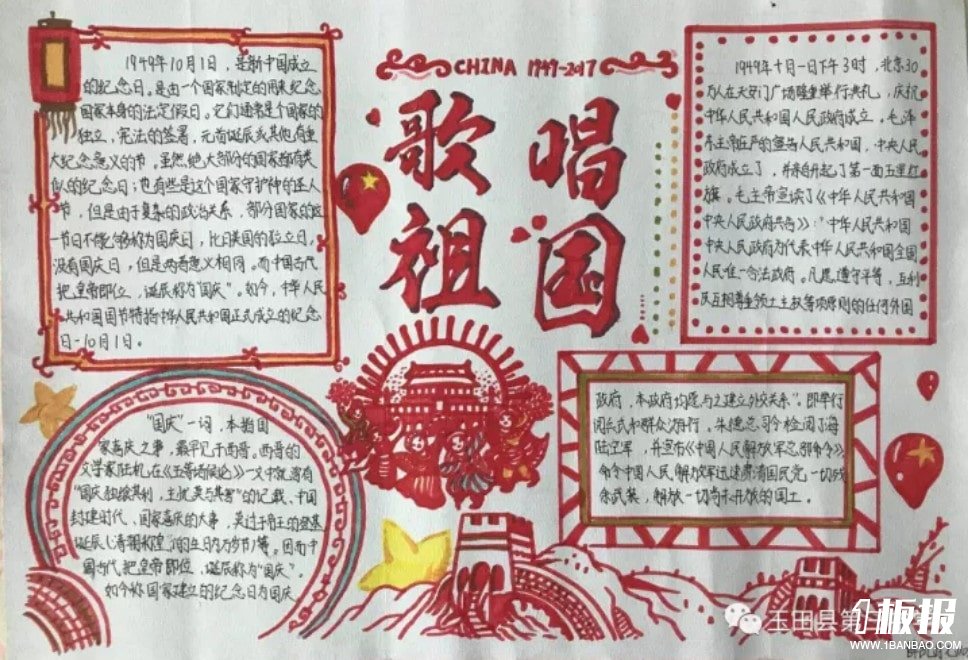 CHINA 1949-2017
歌唱
祖国
1949年10月1日，是新中国成立
的纪念日。是由一个国家制定的用来纪念
国家本身的法定假日。它们通常是个国家的
独立、宪法的签署、元首诞辰或其他有重
大纪念意义的节，虽然绝大部分的国家都有类
似的纪念日；也有些是这个国家守护神的圣人
节，但是由于复杂的政治关系，部分国家的这
一节日不能够称为国庆日，比如美国的独立日，
没有国庆日，但是两者意义相同。而中国古代
把皇帝即位、诞辰称为“国庆”。如今，中华人民
共和国国节特指中华人民共和国正式成立的纪念
日-10月1日。
1949年十月一日下午3时，北京30
万人在天安门广场隆重举行典礼，庆祝
中华人民共和国人民政府成立。毛泽
东主席庄严的宣告人民共和国，中央人民
政府成立了，并亲自升起了第一面五星红
旗。毛主席宣读了《中华人民共和国
中央人民政府公告》：“中华人民共和国
中央人民政府为代表中华人民共和国全国
人民唯一合法政府。凡愿遵守平等，互利
及互相尊重领土主权等项原则的任何外国
“国庆”一词，本指国
家喜庆之事，最早见于西晋。西晋的
文学家陆机在《五等诸侯论》一文中就曾有
“国庆独飨其利，主忧莫与其害”的记载、中国
封建时代、国家喜庆的大事，莫过于帝王的登基
诞辰（清朝称皇
的生日为万岁节）等。因而中
国古代把皇帝即位、诞辰称为“国庆”。
如今称国家建立的纪念日为国庆
政府，本政府均愿与之建立外交关系”。即举行
阅兵式和群众游行。朱德总司令检阅了海
陆空军，并宣布《中国人民解放军总部命令》
命令中国人民解放军迅速肃清国民党一切残
余武装，解放一切尚未开放的国土。
玉田县第
板报
WWW.1BANBAO.COM